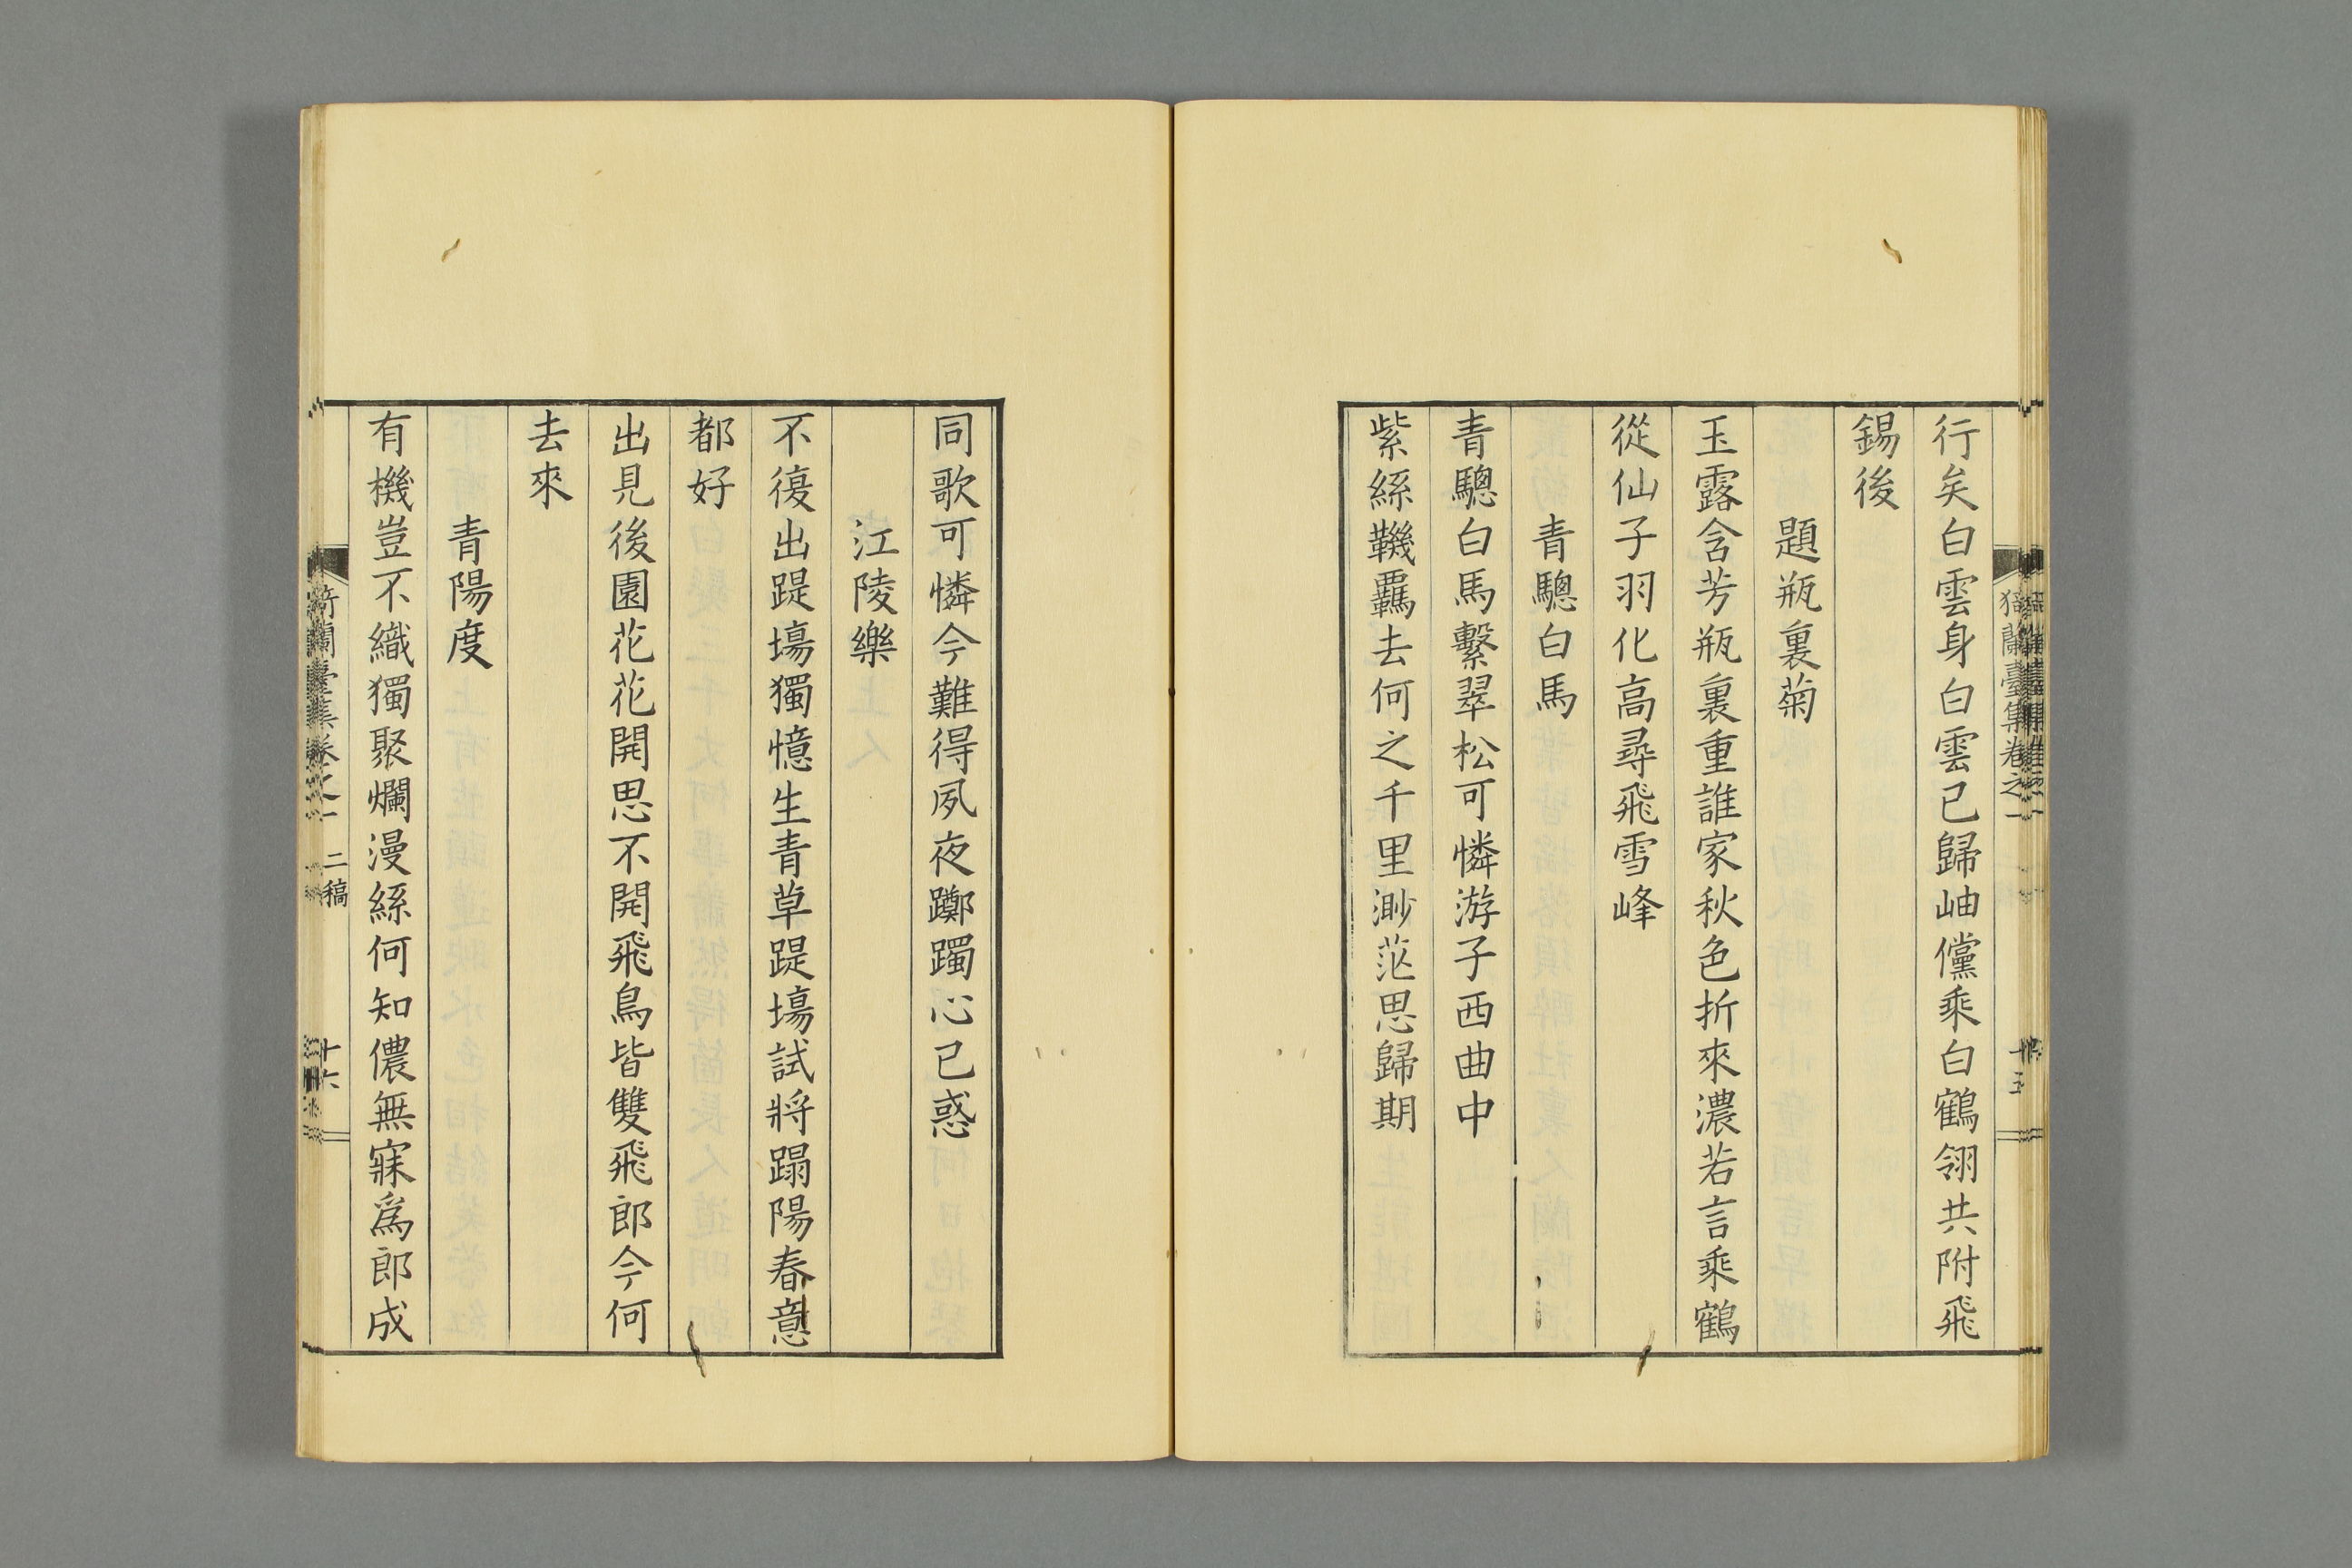 行矣白雲身白雲已歸岫儻乘白鶴翎共附飛
錫後
題瓶裏菊
玉露含芳瓶裏重誰家秋色折來濃若言乘鶴
從仙子羽化高尋飛雪峰
青驄白馬
青驄白馬繫翠松可憐游子西曲中
紫絲鞿羈去何之千里渺茫思歸期
同歌可憐今難得夙夜躑躅心已惑
江陵樂
不復出踶場獨憶生青草踶場試將蹋陽春意
都好
出見後園花花開思不開飛鳥皆雙飛郎今何
去來
青陽度
有機豈不織獨聚爛漫絲何知儂無寐爲郎成
猗蘭臺集卷之一
二稿
十六